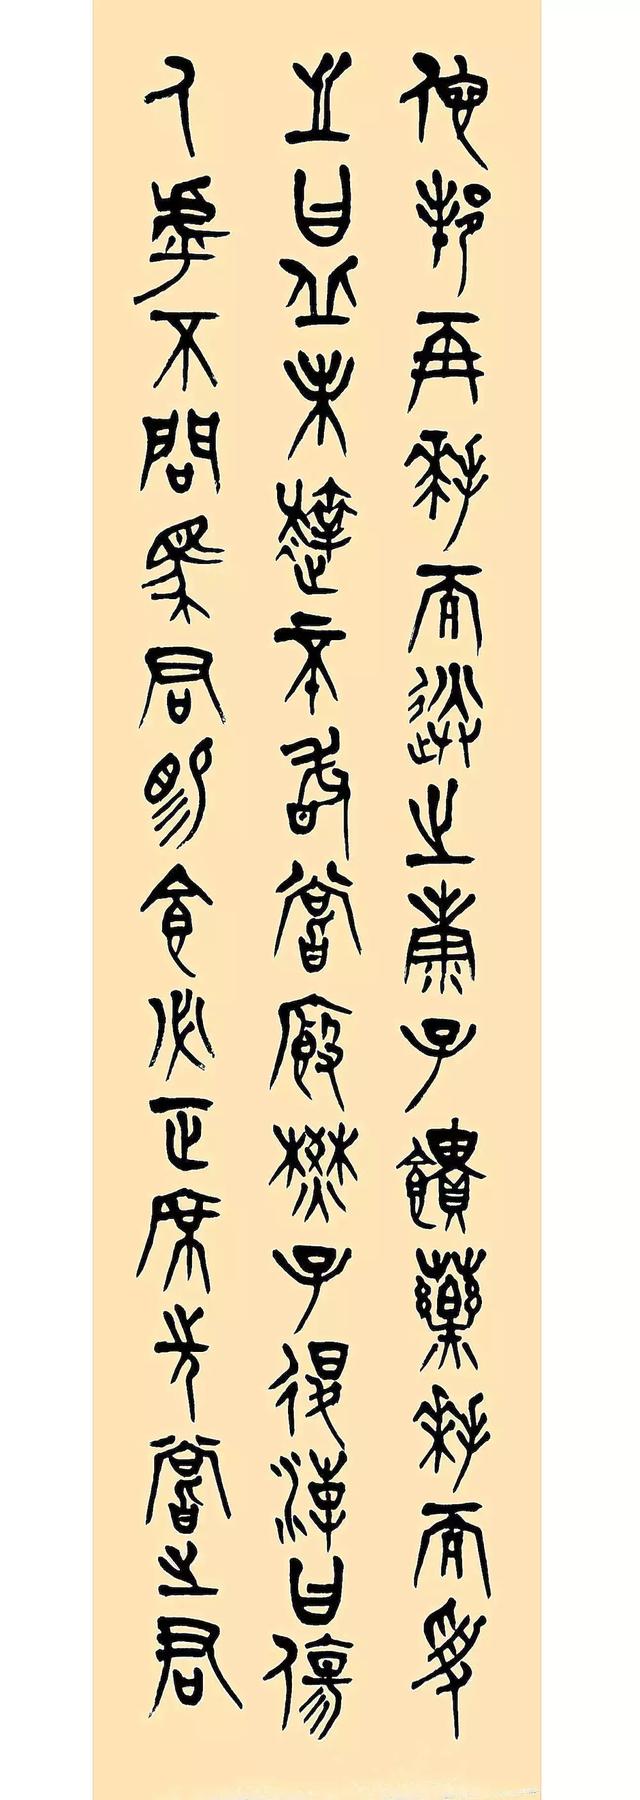 他邦再拜而送之康子饋藥拜而受
之曰丘未達不敢嘗廄焚子退朝曰傷
人乎不問馬君賜食必正席先嘗之君